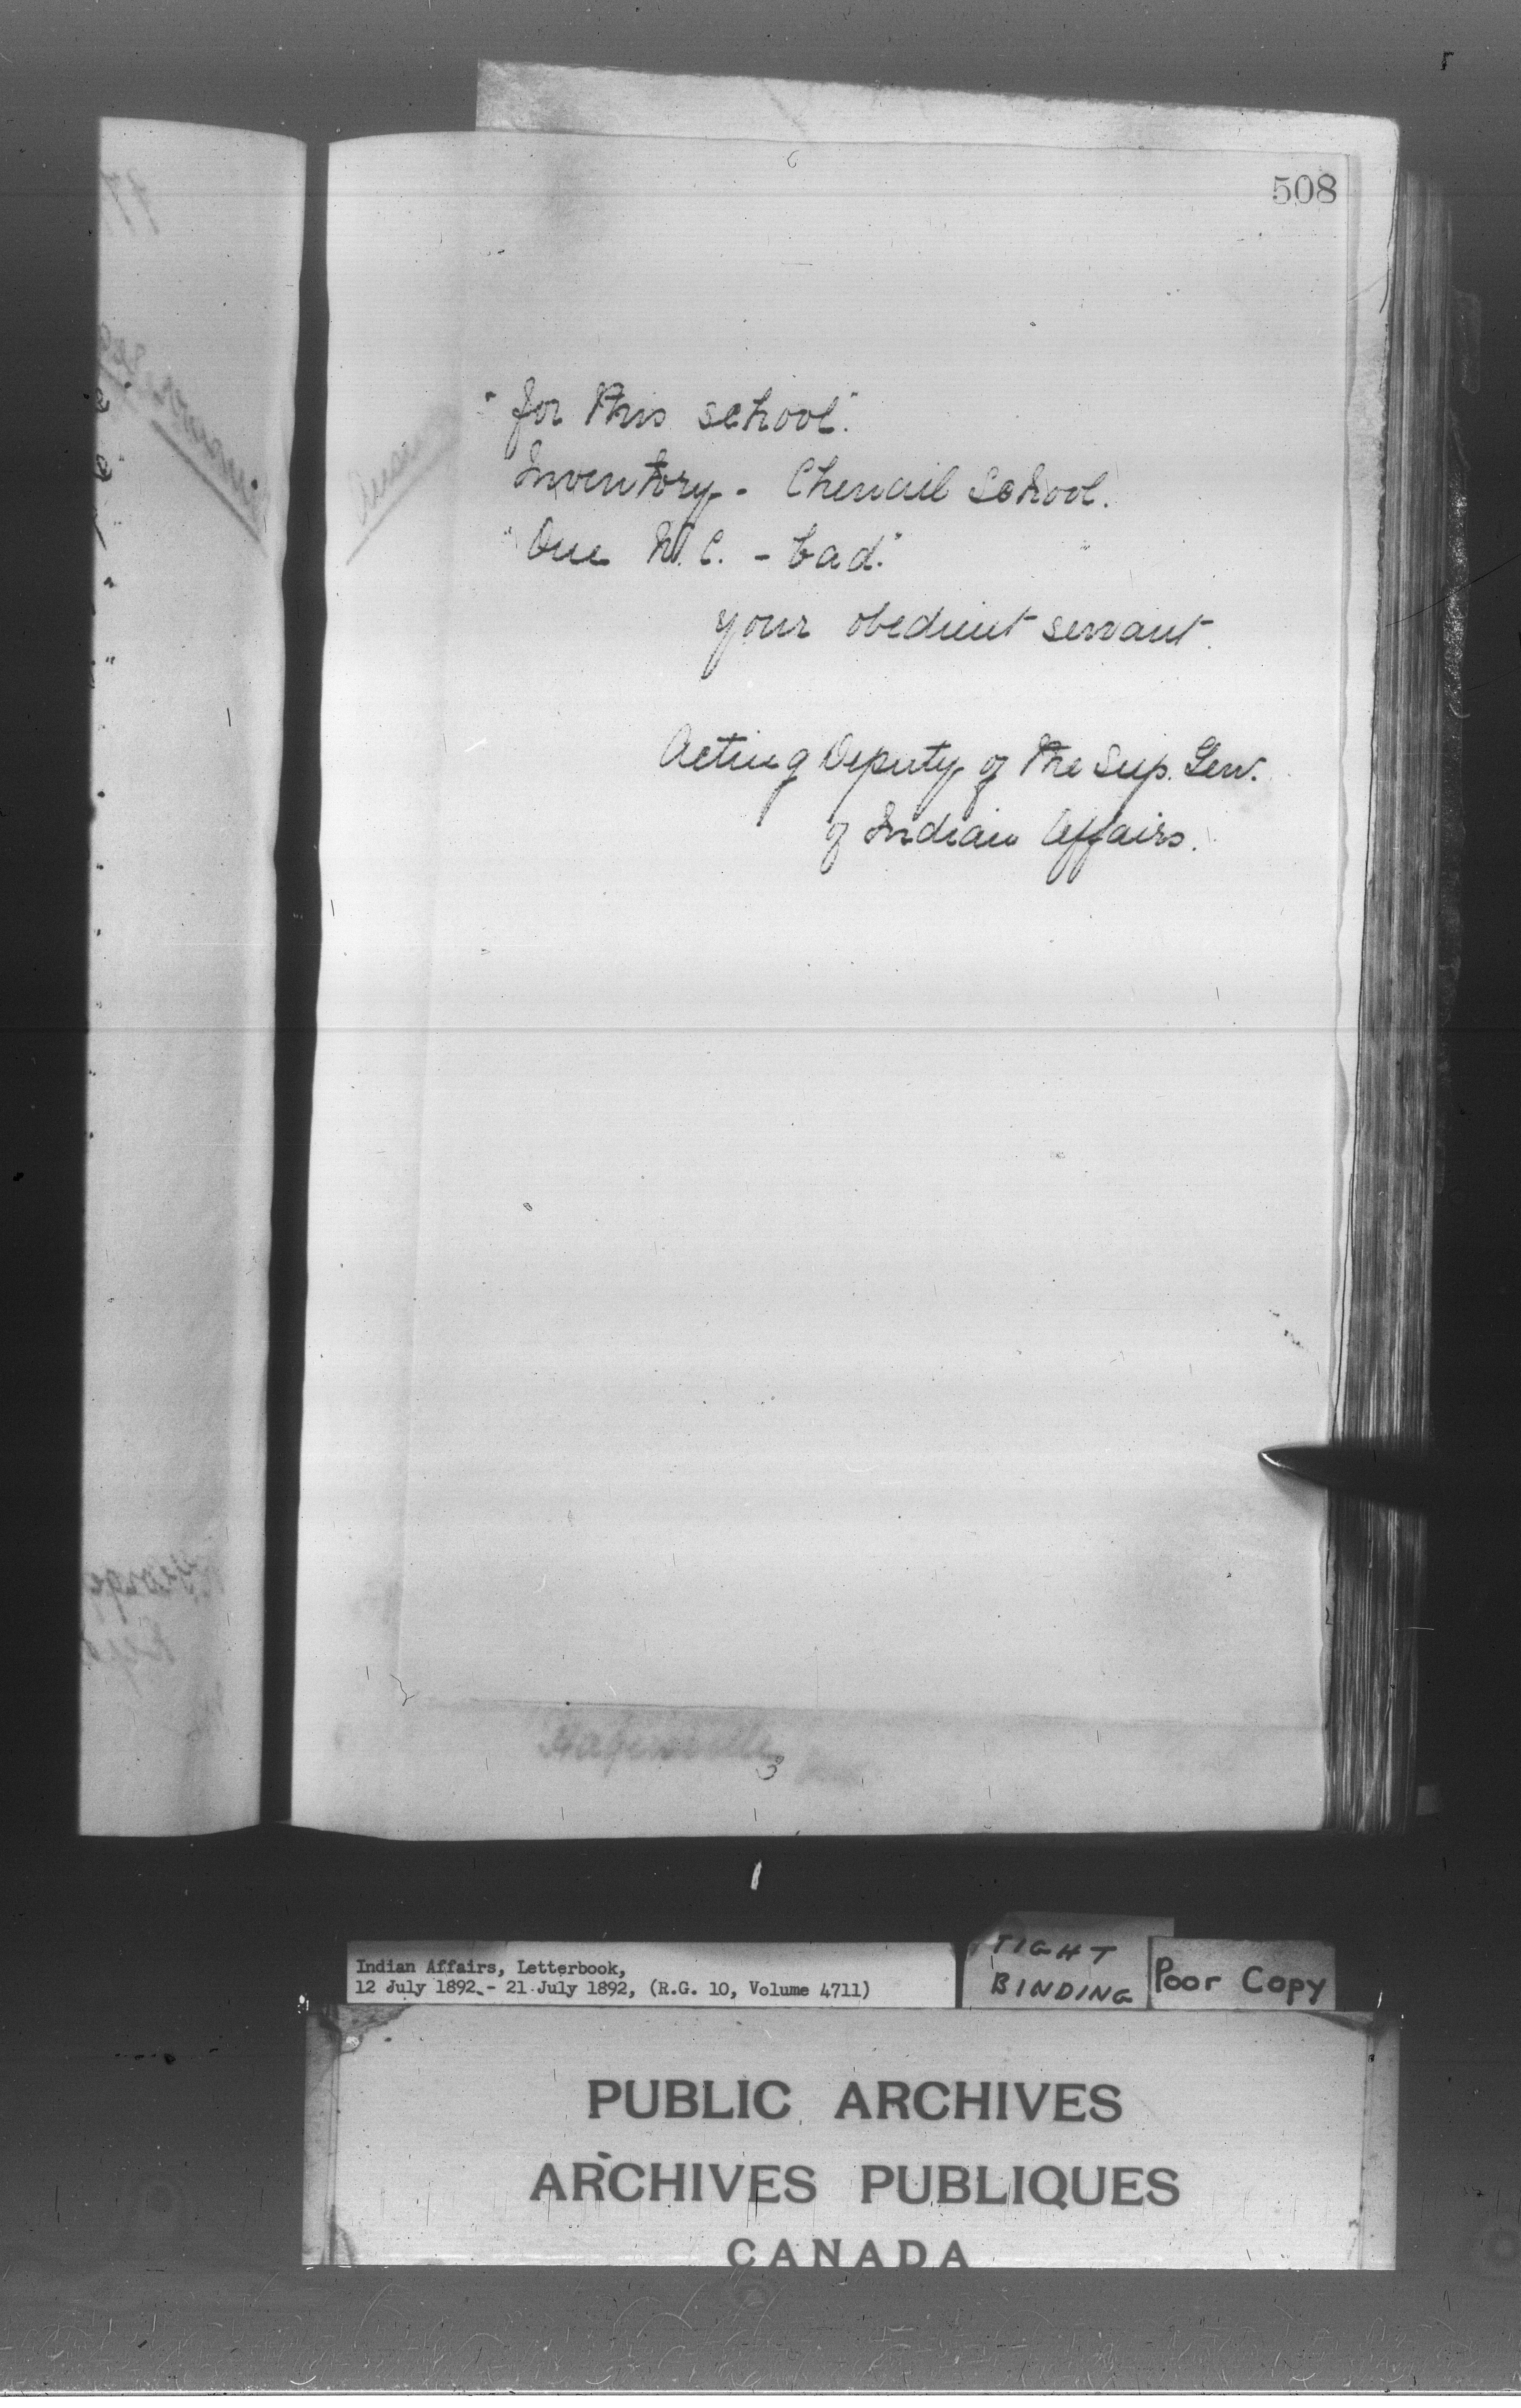 508
"for this school."
Inventory - Chenail School.
"One W.C. - bad."
your obedient servant.
Acting Deputy of the Sup. Gen.
of Indian Affairs.
Indian Affairs, Letterbook,
12 July 1892 - 21 July 1892, (R.G. 10, Volume 4711)
TIGHT
BINDING
Poor Copy
PUBLIC ARCHIVES
ARCHIVES PUBLIQUES
CANADA